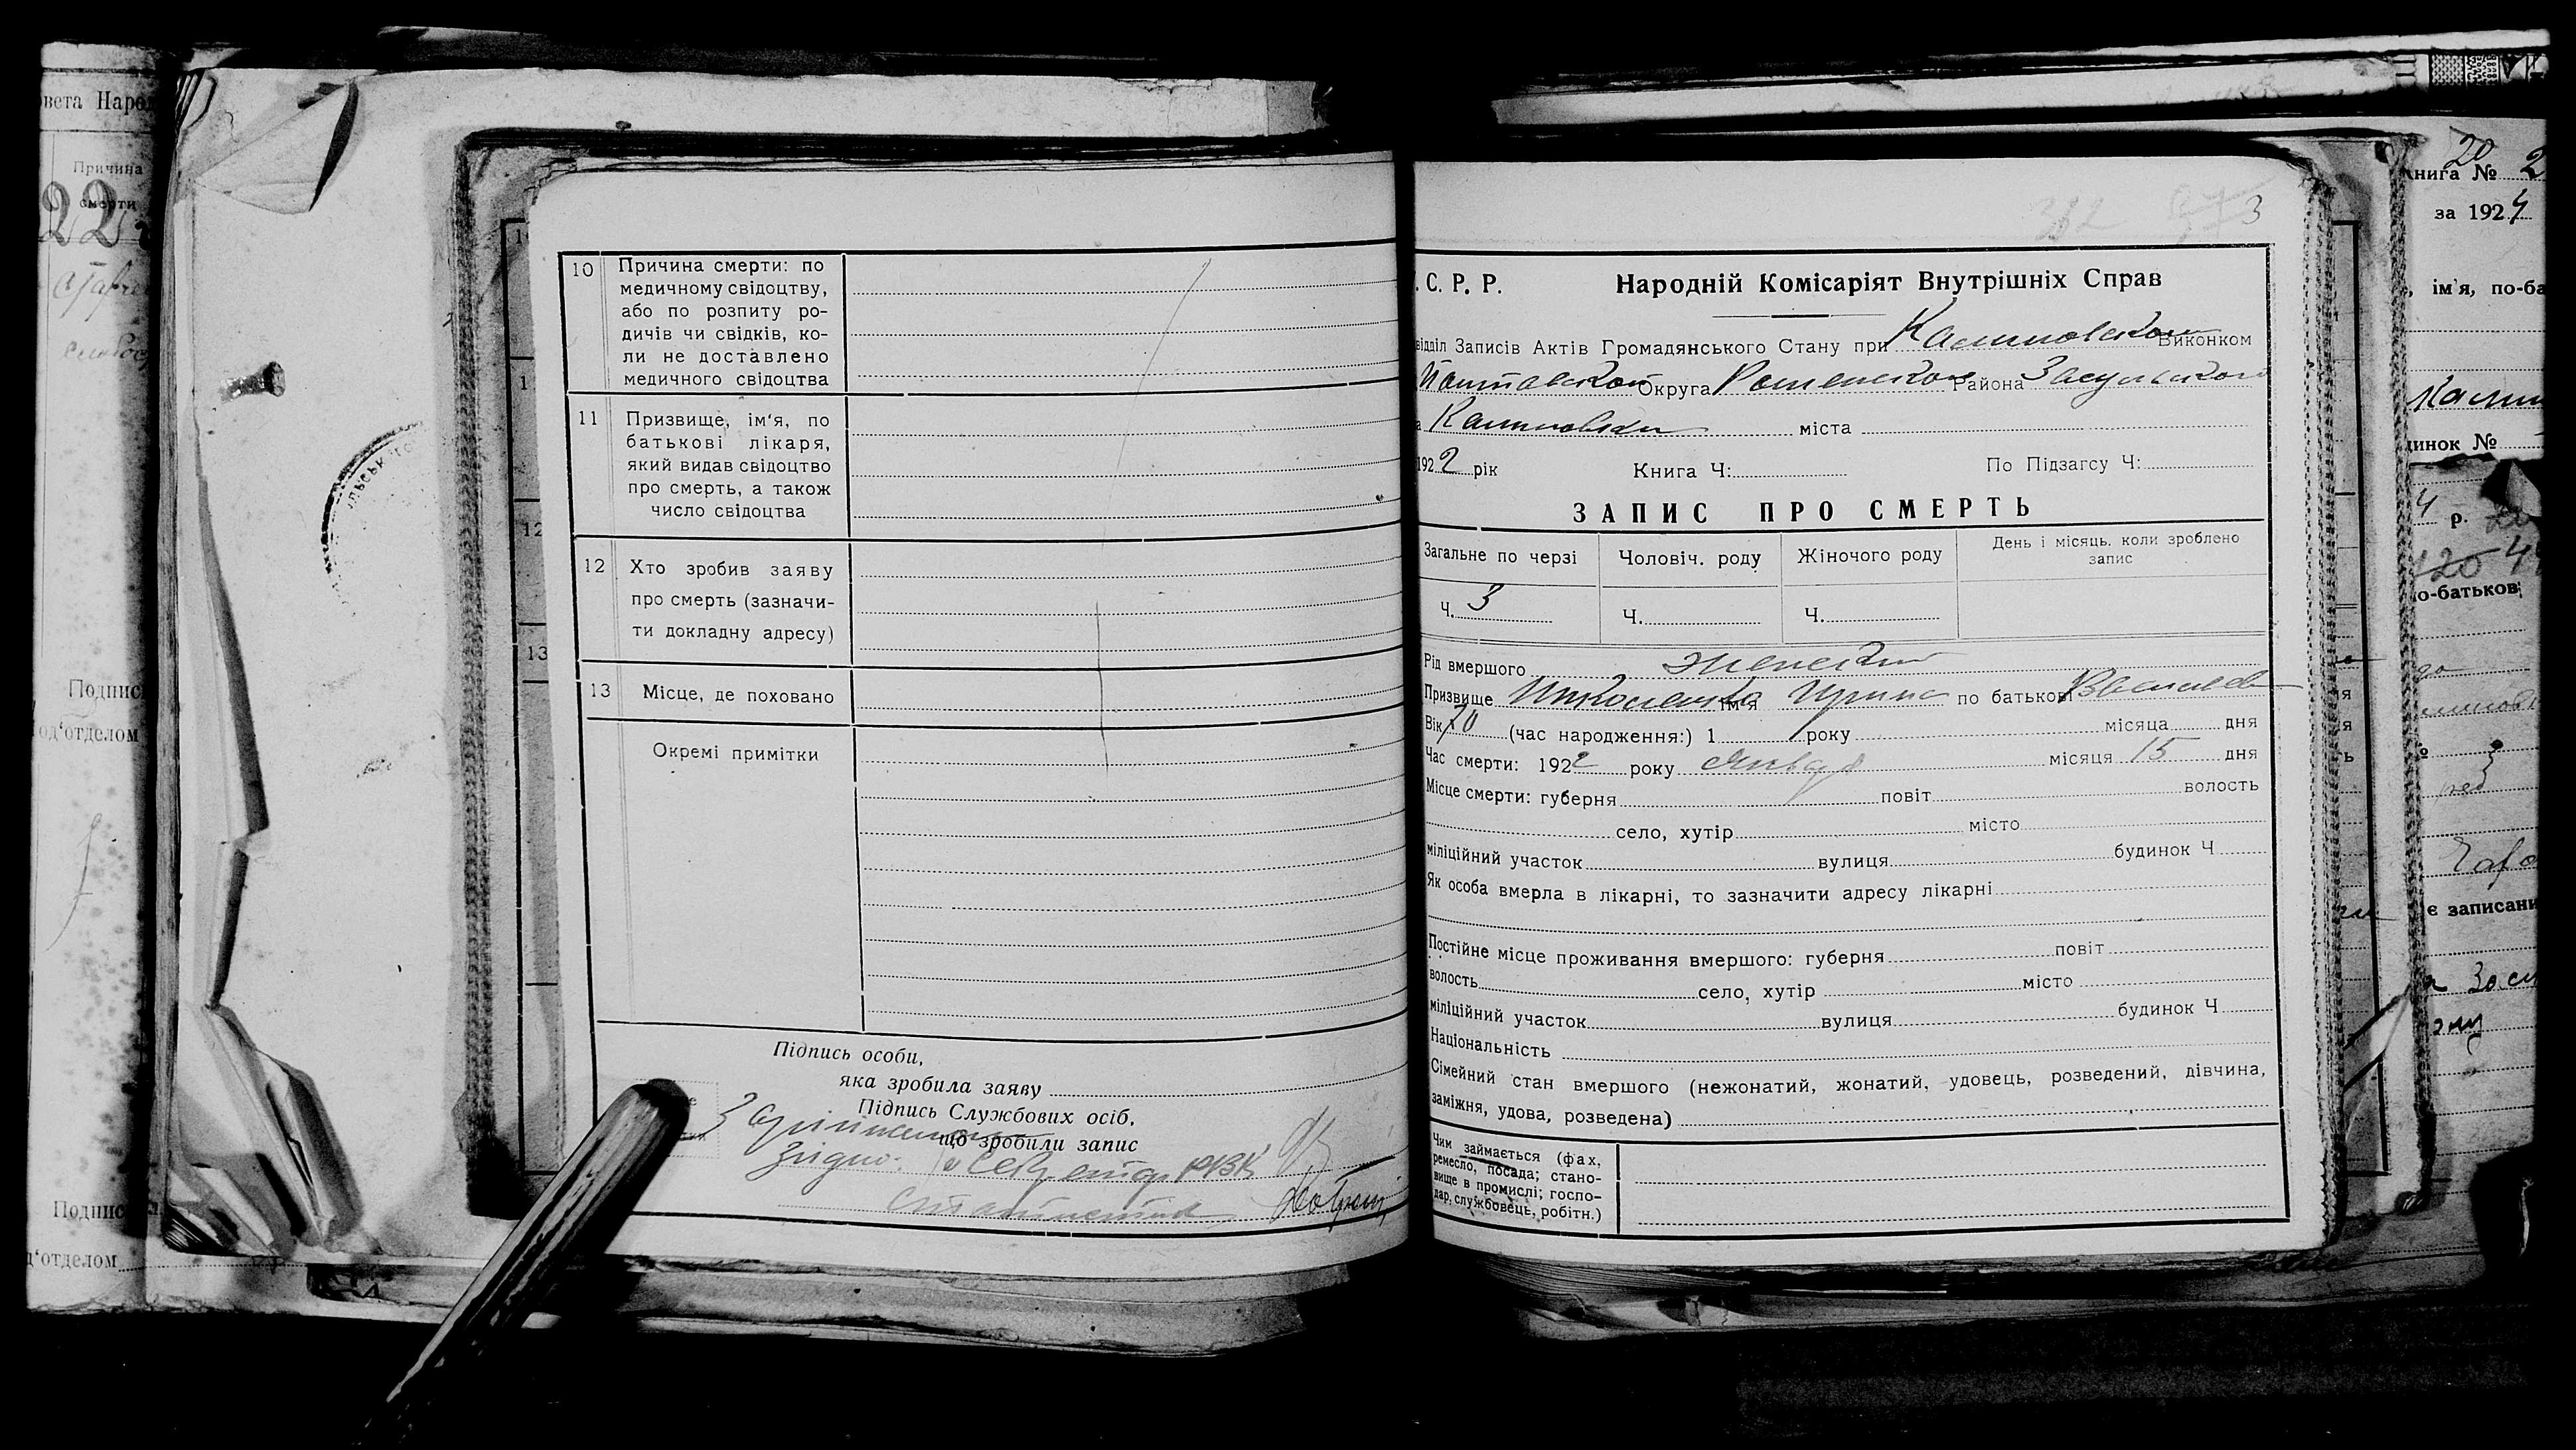 овета Народ
Причина
смерти
22
Подпис
од‘отделом
Подпис
д‘отделом
10 Причина смерти: по
медичному свідоцтву,
або по розпиту ро-
дичів чи свідків, ко-
ли не доставлено
медичного свідоцтва
11 Призвище, ім‘я, по
батькові лікаря,
який видав свідоцтво
про смерть, а також
число свідоцтва
12 Хто зробив заяву
про смерть (зазначи-
ти докладну адресу)
13 Місце, де поховано
Окремі примітки
Підпись особи,
яка зробила заяву
Підпись Службових осіб,
що зробили запис
Згідно: Секретар РВК
1
12
13
3
. С. Р. Р. Народній Комісаріят Внутрішніх Справ
відділ Записів Актів Громадянського Стану при Калиновском Виконком
Полтавской Округа Роменской Района Засульского
а Калиновки міста
1922 рік Книга Ч: По Підзагсу Ч:
ЗАПИС ПРО СМЕРТЬ
Загальне по черзі Чоловіч. роду Жіночого роду День і місяць. коли зроблено
запис
Ч. 3 Ч. Ч.
Рід вмершого женский
Призвище ім‘я Ирина по батькові
Вік 70 (час народження:) 1 року місяца дня
Час смерти: 1922 року Января місяця 15 дня
Місце смерти: губерня повіт волость
село, хутір місто
міліційний участок вулиця будинок Ч
Як особа вмерла в лікарні, то зазначити адресу лікарні
Постійне місце проживання вмершого: губерня повіт
волость село, хутір місто
міліційний участок вулиця будинок Ч
Національність
Сімейний стан вмершого (нежонатий, жонатий, удовець, розведений, дівчина,
заміжня, удова, розведена)
Чим займається (фах,
ремесло, посада; стано-
вище в промислі; госпо-
дар, службовець, робітн.)
20
книга № 2
за 1924
, ім‘я, по-ба
Кали
инок №
4 р.
о-батькові
є записани